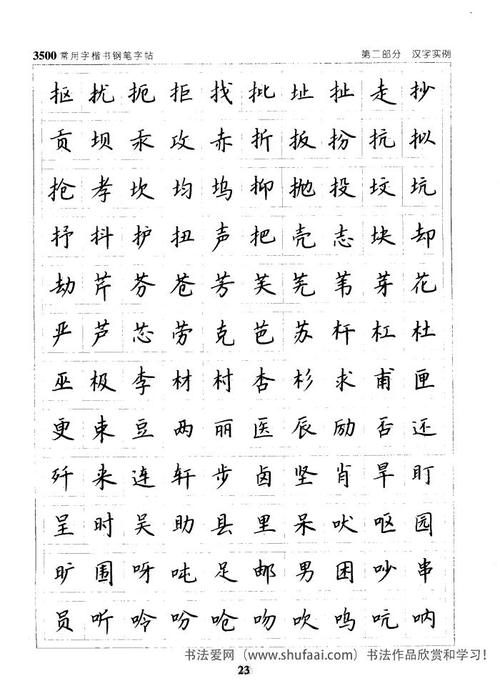 3500常用字楷书钢笔字帖 第二部分 汉字实例
抠 扰 扼 拒 找 批 址 扯 走 抄
贡 坝 汞 攻 赤 折 扳 扮 抗 拟
抢 孝 坎 均 坞 抑 抛 投 坟 坑
抒 抖 护 扭 声 把 壳 志 块 却
劫 芹 芬 苍 芳 芙 芜 苇 芽 花
严 芦 芯 劳 克 芭 苏 杆 杠 杜
巫 极 李 材 村 杏 杉 求 甫 匣
更 束 豆 两 丽 医 辰 励 否 还
歼 来 连 轩 步 卤 坚 肖 旱 盯
呈 时 吴 助 县 里 呆 吠 呕 园
旷 围 呀 吨 足 邮 男 困 吵 串
员 听 吟 吩 呛 吻 吹 呜 吭 呐
书法爱网（www.shufaai.com）书法作品欣赏和学习！
23